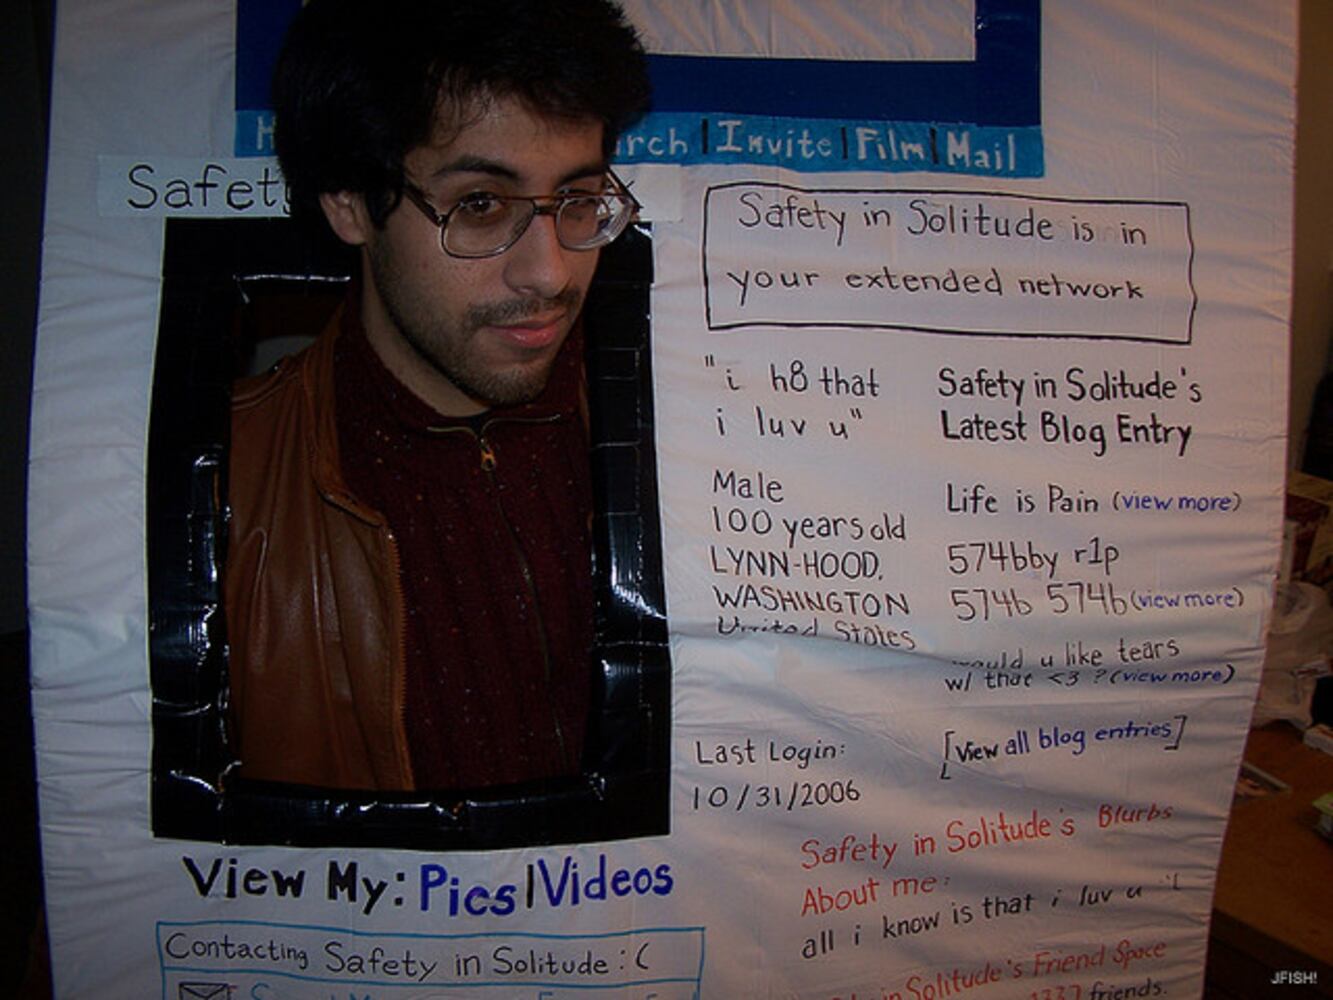 Invite | Film | Mail
Safety
Safety in Solitude is in
your extended network
"i h8 that
i luv u"
Male
100 years old
LYNN-HOOD,
WASHINGTON
United States
Last Login:
10/31/2006
Safety in Solitude's
Latest Blog Entry
Life is Pain (view more)
574bby r1p
574b 574b (view more)
would u like tears
w/ that <3 ? (view more)
[View all blog entries]
View My: Pics | Videos
Safety in Solitude's Blurbs
About me:
all i know is that i luv u
Contacting Safety in Solitude :(
in Solitude's Friend Space
1337 friends.
JFISH!